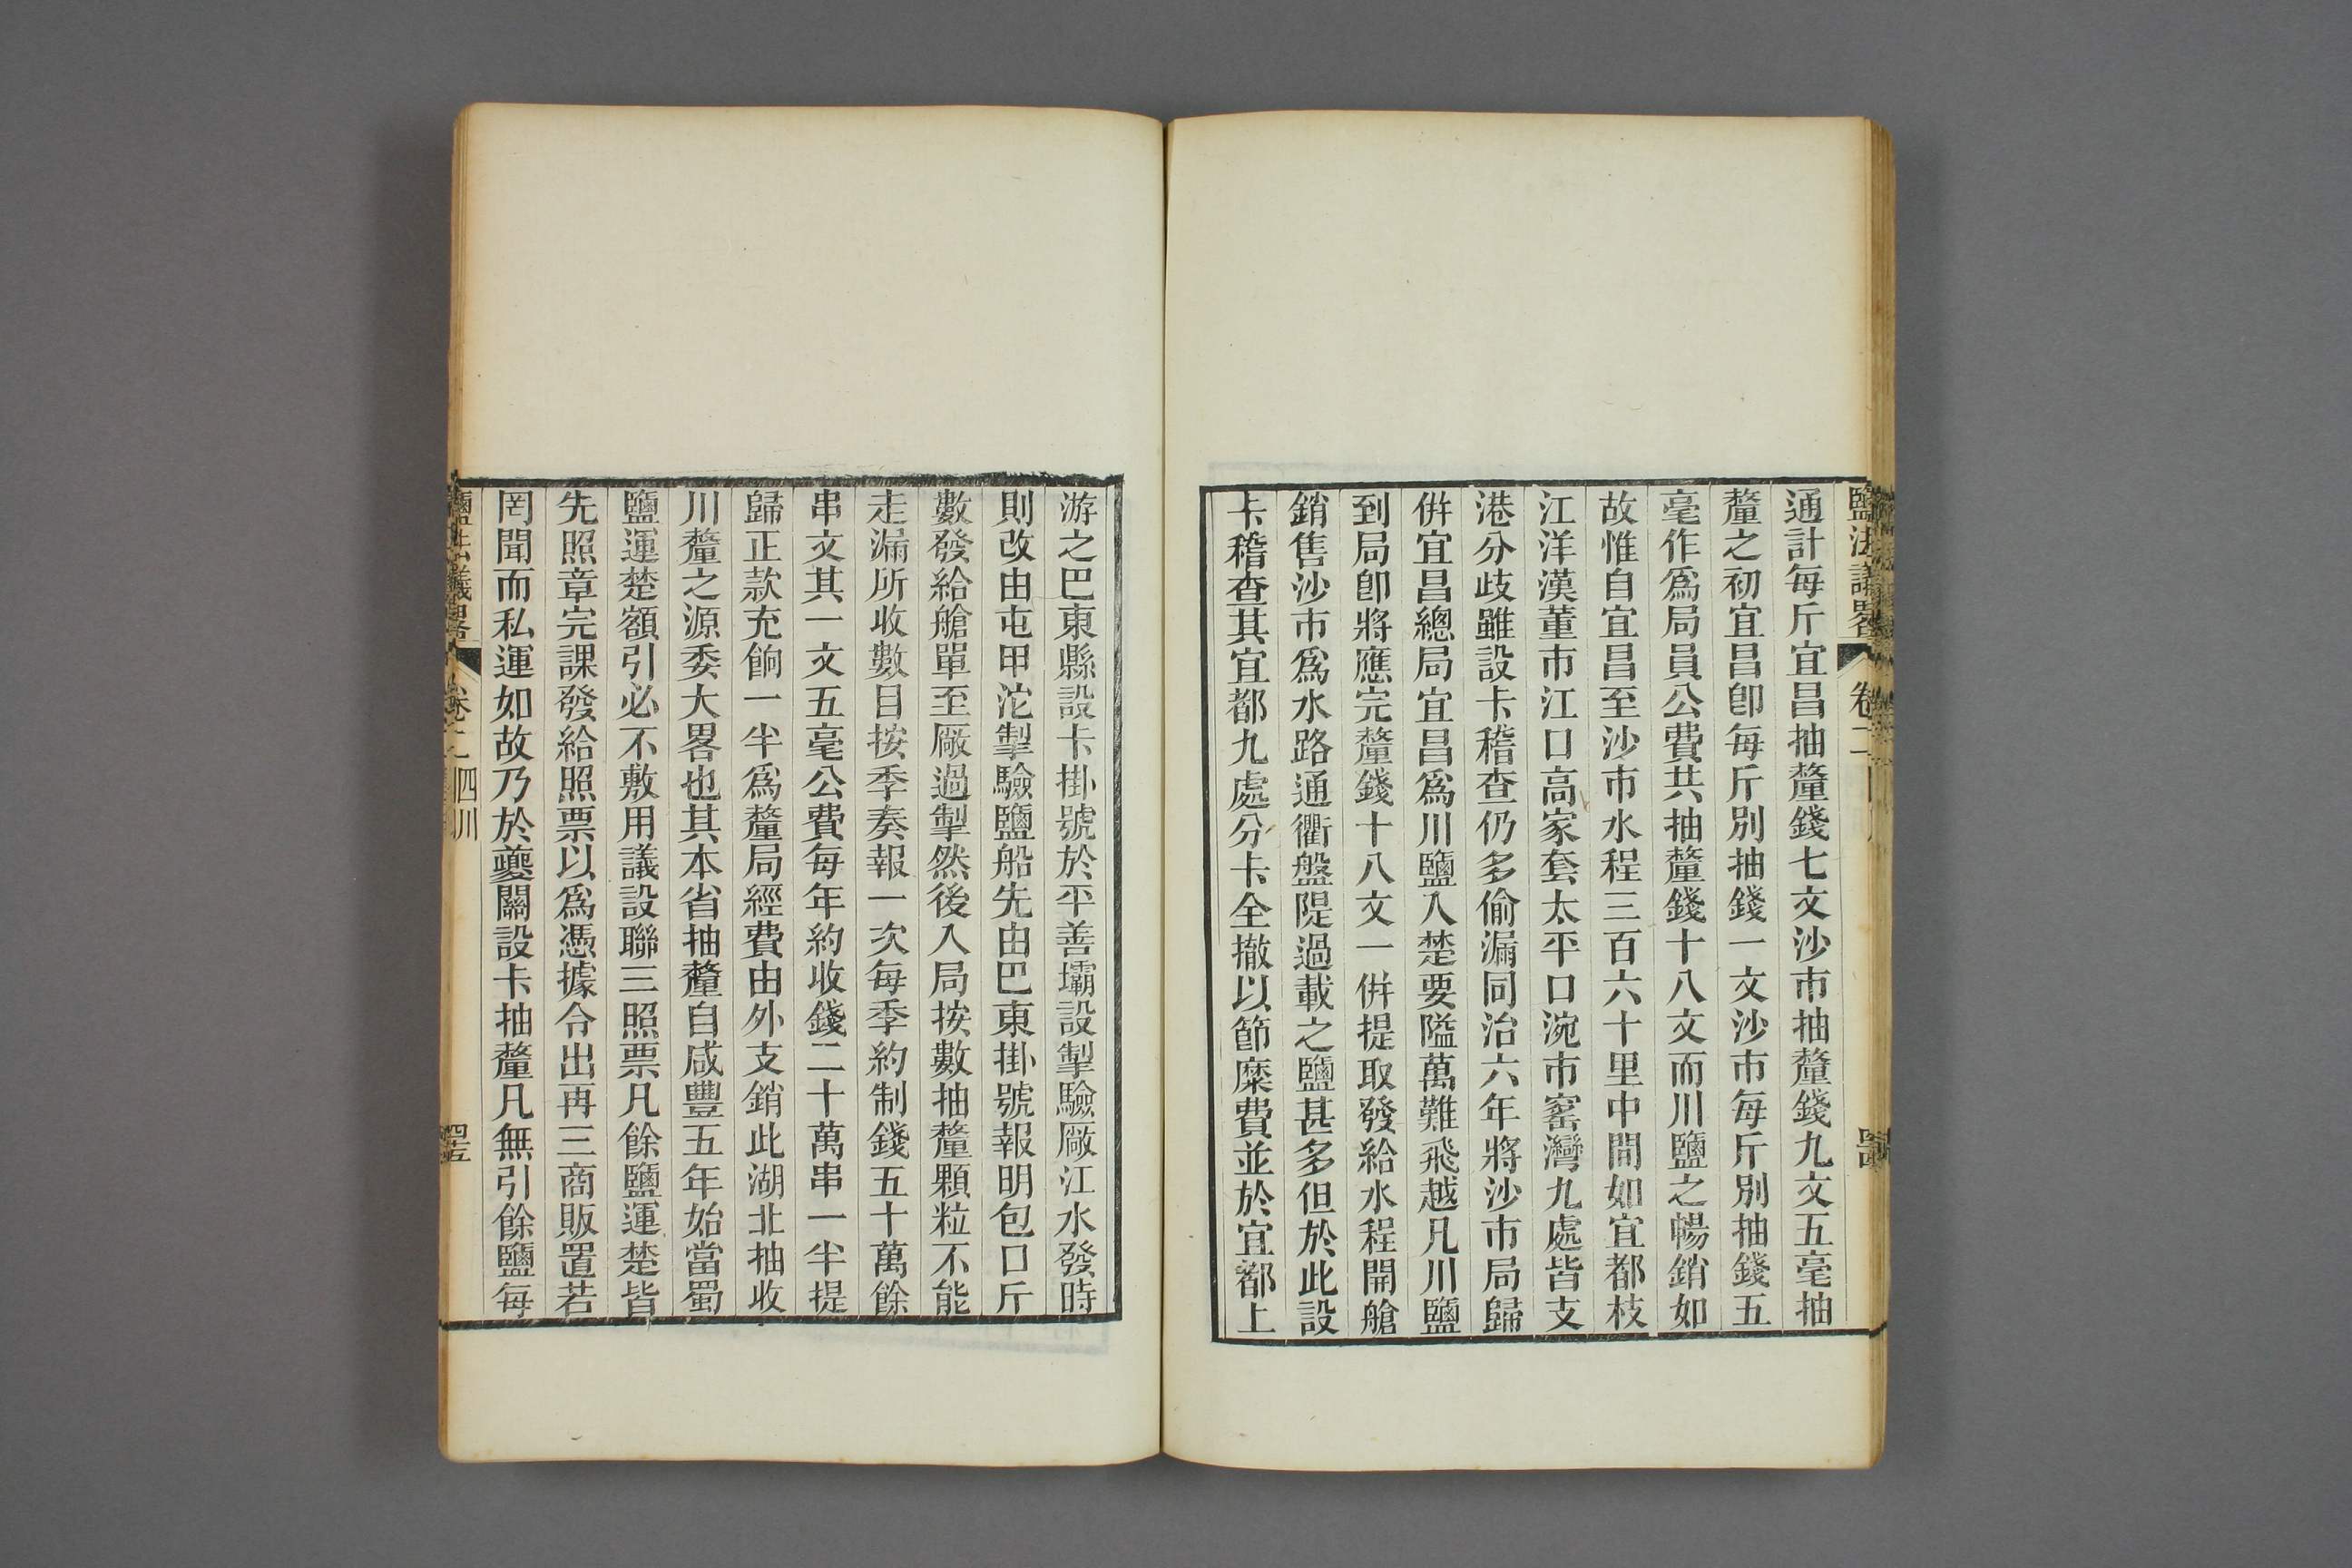 鹽法議畧 卷二
通計每斤宜昌抽釐錢七文沙市抽釐錢九文五毫抽
釐之初宜昌卽每斤別抽錢一文沙市每斤別抽錢五
毫作爲局員公費共抽釐錢十八文而川鹽之暢銷如
故惟自宜昌至沙市水程三百六十里中間如宜都枝
江洋漢董市江口高家套太平口涴市窰灣九處皆支
港分歧雖設卡稽查仍多偷漏同治六年將沙市局歸
倂宜昌總局宜昌爲川鹽入楚要隘萬難飛越凡川鹽
到局卽將應完釐錢十八文一倂提取發給水程開艙
銷售沙市爲水路通衢盤隄過載之鹽甚多但於此設
卡稽查其宜都九處分卡全撤以節糜費並於宜都上
游之巴東縣設卡掛號於平善壩設掣驗厰江水發時
則改由屯甲沱掣驗鹽船先由巴東掛號報明包口斤
數發給艙單至厰過掣然後入局按數抽釐顆粒不能
走漏所收數目按季奏報一次每季約制錢五十萬餘
串文其一文五毫公費每年約收錢二十萬串一半提
歸正款充餉一半爲釐局經費由外支銷此湖北抽收
川釐之源委大畧也其本省抽釐自咸豐五年始當蜀
鹽運楚額引必不敷用議設聯三照票凡餘鹽運楚皆
先照章完課發給照票以爲憑據令出再三商販置若
罔聞而私運如故乃於夔關設卡抽釐凡無引餘鹽每
鹽法議畧 卷二 四川 四十五